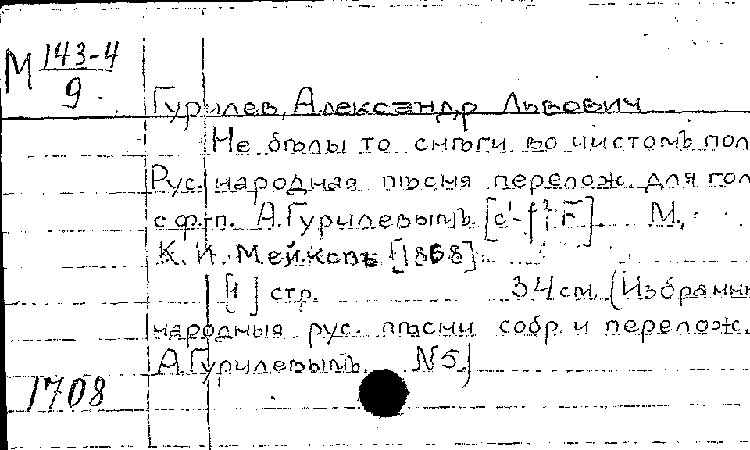 М 143-4
9.
Гурилев, Александр Львович
Не бѣлы то снѣги во чистомъ пол
Рус. народная пѣсня перелож. для гол
с ф.п. А. Гурилевымъ [c¹-f²; F]. М.,
К. И. Мейков [1868]
[1] стр. 34 см. (Избранн
народныя рус. пѣсни собр. и перелож.
А. Гурилевымъ. N5.)
1708